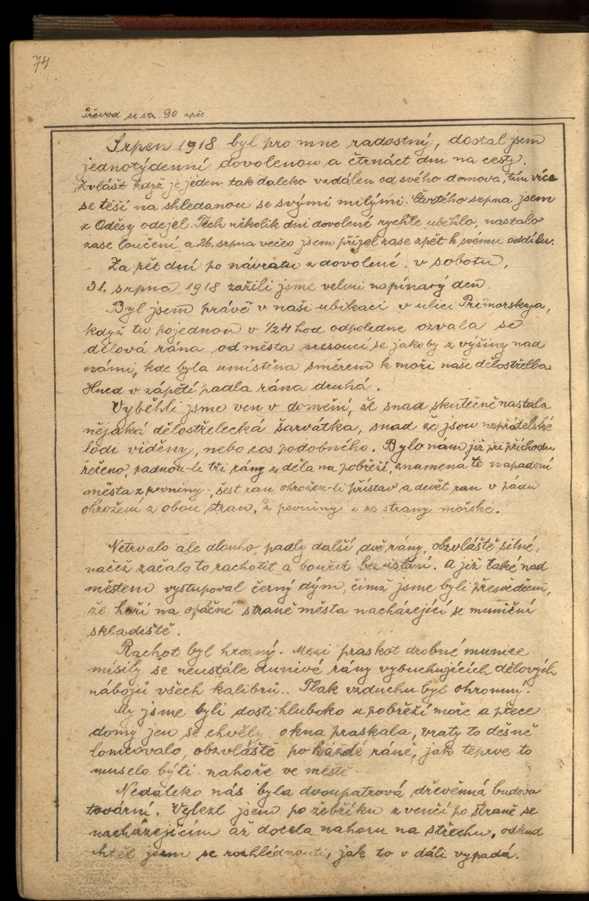 74
Převod se str. 90 zpět.
Srpen 1918 byl pro mne radostný, dostal jsem
jednotýdenní dovolenou a čtrnáct dní na cesty.
Zvlášť když je jeden tak daleko vzdálen od svého domova, tím více
se těší na shledanou se svými milými. Čtvrtého srpna jsem
z Oděsy odejel. Těch několik dní dovolené rychle uběhlo, nastalo
zase loučení a 26. srpna večeo jsem přijel zase zpět k svému oddílu.
Za pět dní po návratu z dovolené, v sobotu,
31. srpna 1918 zažili jsme velmi napínavý den
Byl jsem právě v naší ubikaci v ulici Primorskaja,
když tu pojednou v 1/24 hod odpoledne ozvala se
dělová rána od města nesoucí se jakoby z výšiny nad
námi, kde byla umístěna směrem k moři naše dělostřelba
Hned v zápětí padla rána druhá.
Vyběhli jsme ven v domění, že snad skutečně nastala
nějaká dělostřelecká šarvátka, snad že jsou nepřátelské
lodi viděny, nebo cos podobného. Bylo nám již při příchodu
řečeno, padnou-li tři rány z děla na pobřeží, znamená to napadení
města z pevniny, šest ran ohrožen-li přístav a devět ran v pádu
ohrožení z obou stran, z pevniny i ze strany mořské.
Netrvalo ale dlouho, padly další dvě rány, obzvláště silné,
načež začalo to rachotit a bouřit bez ustání. A již také nad
městem vystupoval černý dým, čímž jsme byli přesvědčeni,
že hoří na opačné straně města nacházející se muniční
skladiště.
Rachot byl hrozný. Mezi praskot drobné munice
mísily se neustále dunivé rány vybuchujících dělových
nábojů všech kalibrů.. Tlak vzduchu byl ohromný.
My jsme byli dosti hluboko u pobřeží moře a přece
domy jen se chvěly, okna praskala, vraty to děsně
lomcovalo, obzvláště po každé ráně, jak teprve to
muselo býti nahoře ve městě
Nedaleko nás byla dvoupatrová dřevěnná budova
tovární. Vylezl jsem po žebříku z venčí po straně se
nacházejícím až docela nahoru na střechu, odkud
chtěl jsem se rozhlédnouti, jak to v dáli vypadá.